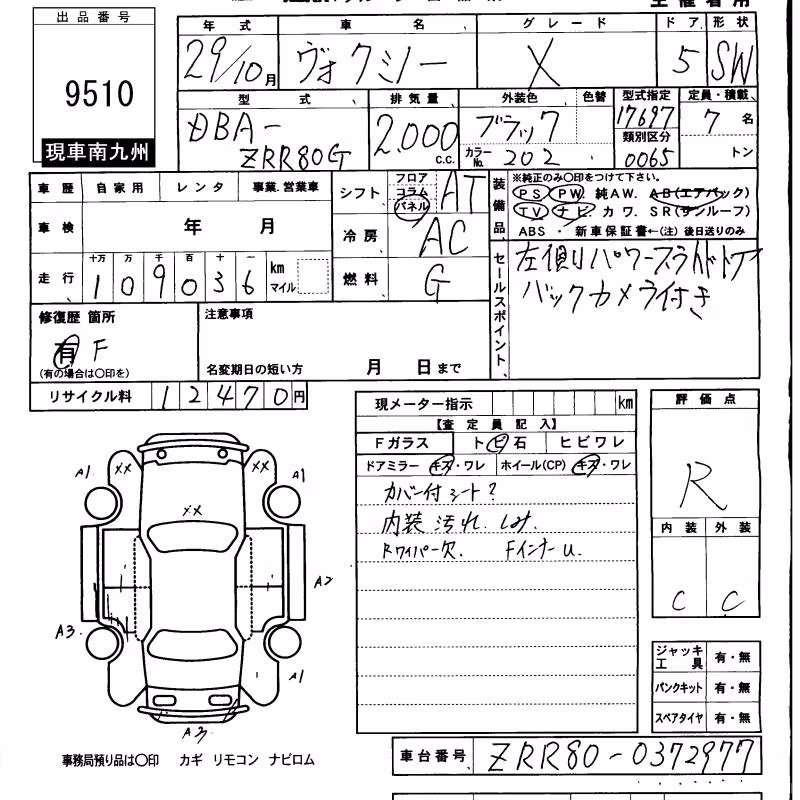 出品番号
9510
現車南九州
年式 車名 グレード ドア 形状
29/10月 ヴォクシー X 5 SW
型式 排気量 外装色 色替 型式指定 定員・積載
DBA-ZRR80G 2,000 C.C. ブラック 17697 7 名
カラーNo. 202 類別区分 0065 トン
車歴 自家用 レンタ 事業.営業車
車検 年 月
走行 十万 万 千 百 十 一 km マイル
109036
シフト フロア コラム パネル AT
冷房 AC
燃料 G
装備品
※純正のみ○印をつけて下さい。
PS PW 純AW. AB(エアバック)
TV ナビ カワ. SR(サンルーフ)
ABS ・ 新車保証書←(注) 後日送りのみ
セールスポイント
左側リパワースライドドアイ
バックカメラ付き
修復歴 箇所
有 F
(有の場合は○印を)
注意事項
名変期日の短い方 月 日まで
リサイクル料 12470円
現メーター指示 km
【査定員記入】
Fガラス トビ石 ヒビワレ
ドアミラー キズ・ワレ ホイール(CP) キズ・ワレ
カバー付シート?
内装 汚れ. しみ.
Rワイパー欠. FインナーU.
評価点
R
内装 外装
C C
ジャッキ工具 有・無
パンクキット 有・無
スペアタイヤ 有・無
A1 XX XX A1
XX
A2
A3
A1
A3
事務局預り品は○印 カギ リモコン ナビロム
車台番号 ZRR80-0372977